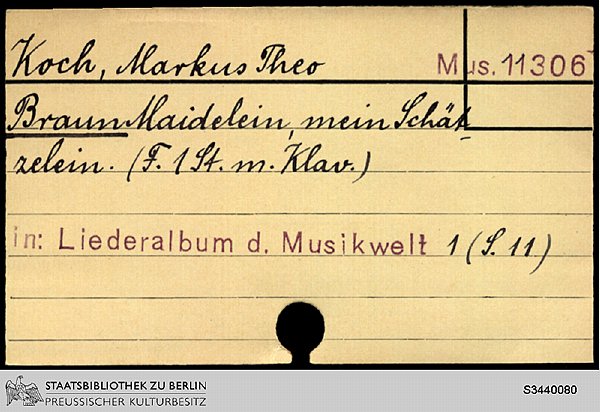 Koch, Markus Theo Mus. 11306
Braun Maidelein, mein Schät-
zelein. (F. 1 St. m. Klav.)
in: Liederalbum d. Musikwelt 1 (S. 11)
STAATSBIBLIOTHEK ZU BERLIN
PREUSSISCHER KULTURBESITZ
S3440080